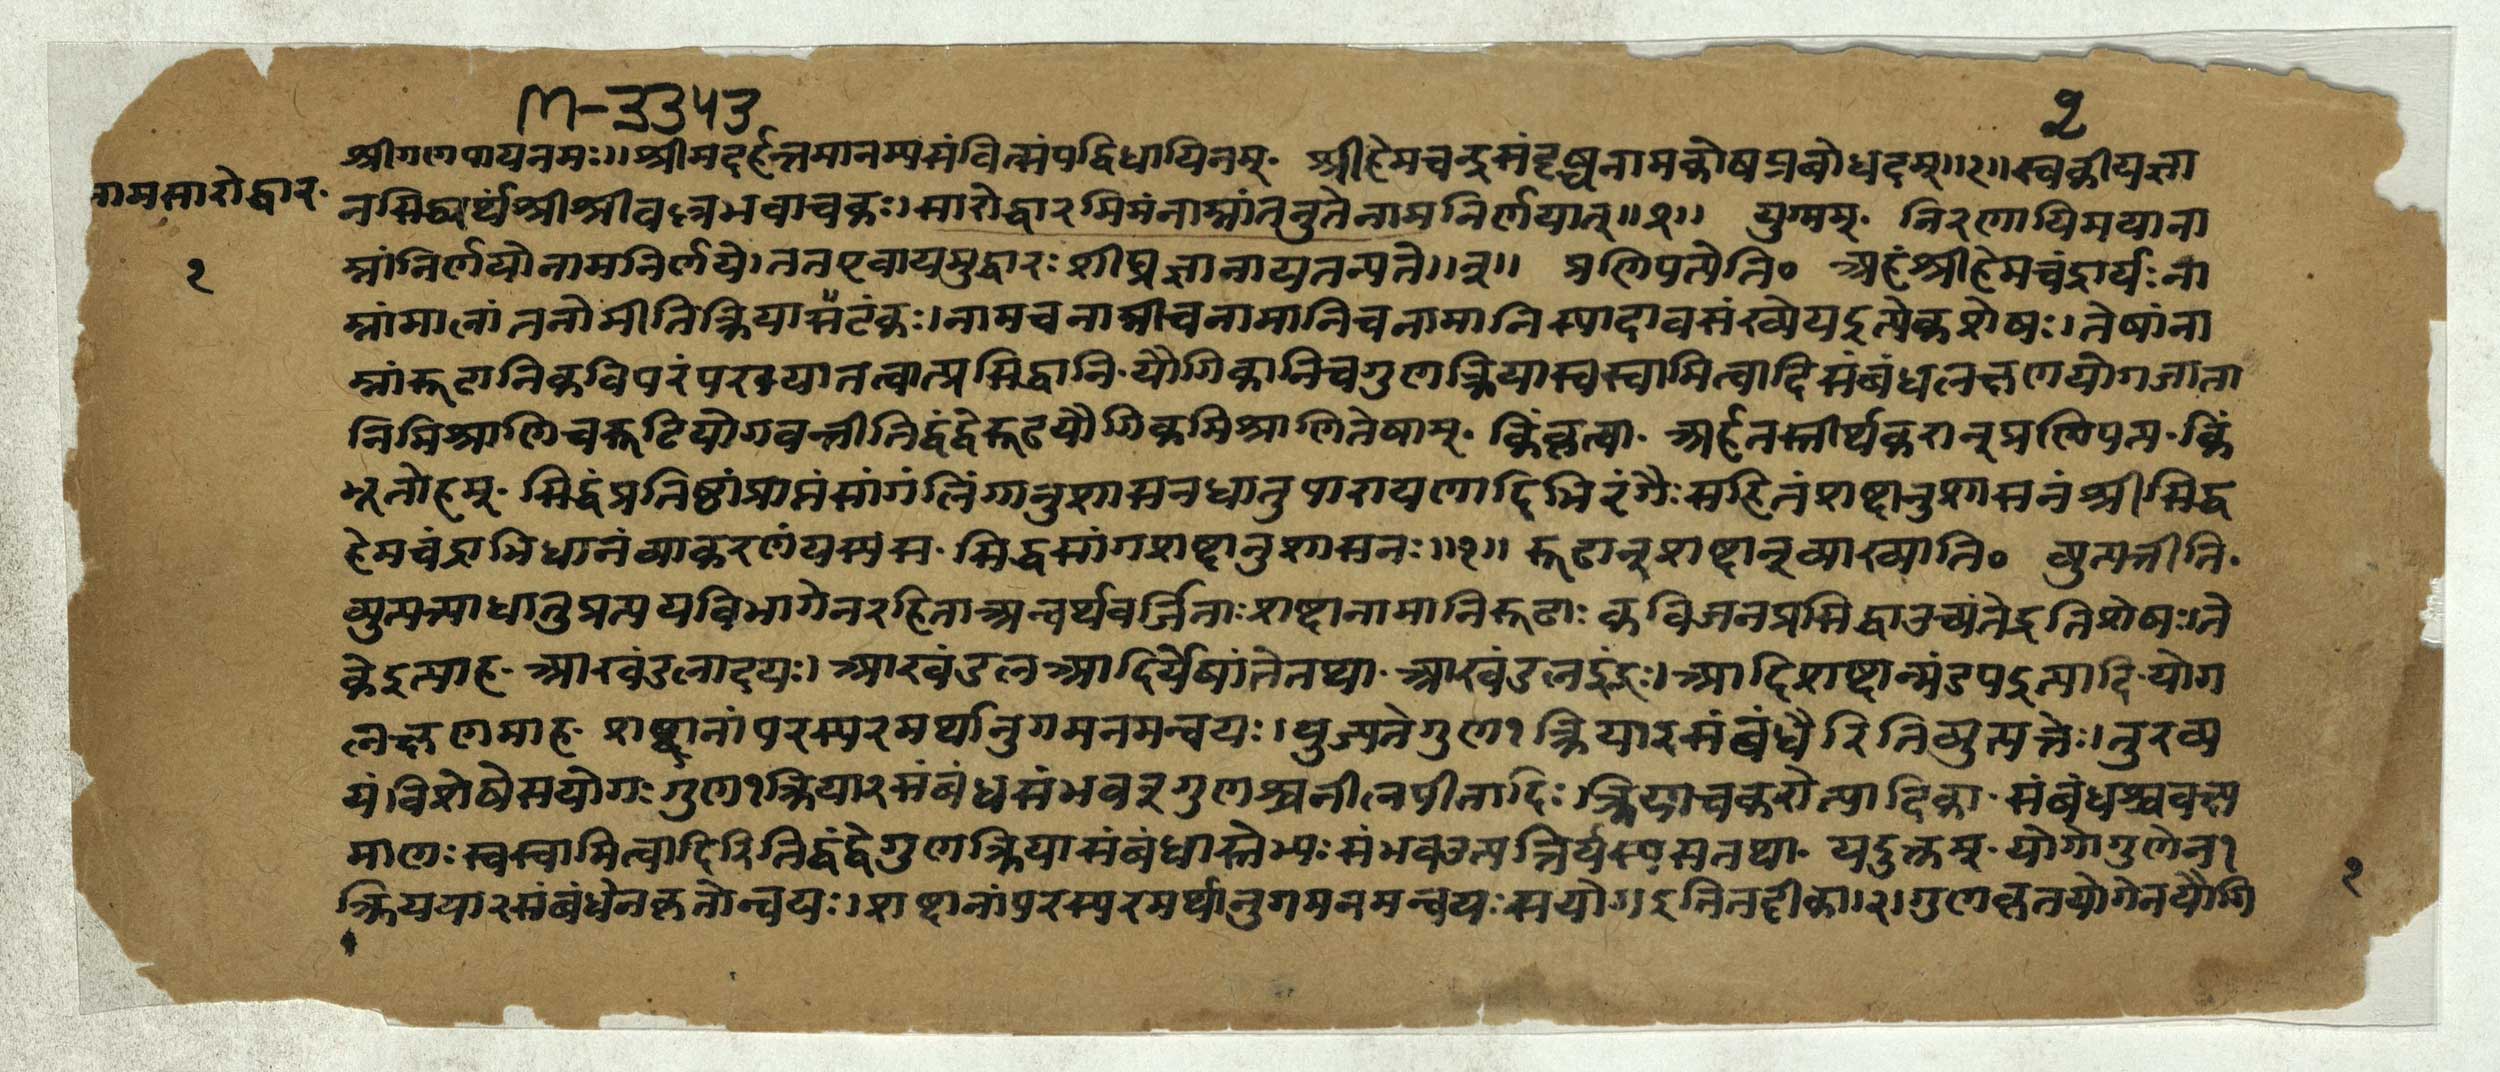 M-३३५३
१
श्रीगणेपायनमः॥श्रीमदर्हन्तमानम्यसंवित्संपद्विधायिनम्· श्रीहेमचन्द्रसंदृष्धनामकोषप्रबोधदम्॥१॥स्वकीयज्ञा
नामसारोद्धार·
नसिद्ध्यर्थंश्रीश्रीवल्लभवाचकः।सारोद्धारमिमंनाम्नांतनुतेनामनिर्णयात्॥२॥ युग्मम्· निरणायिमयाना
१
म्नांनिर्णयोनामनिर्णये।ततएवायमुद्धारःशीघ्रज्ञानायतन्यते॥३॥ प्रणिपत्येति० अहंश्रीहेमचंद्रार्यःना
म्नांमालांतनोमीतिक्रियासंटंकः।नामचनाम्नीचनामानिचनामानिस्यादावसंख्येयइत्येकशेषः।तेषांना
म्नांरूढानिकविपरंपरयायातत्वात्प्रसिद्धानि·यौगिकानिचगुणक्रियास्वस्वामित्वादिसंबंधलक्षणयोगजाता
निमिश्राणिचरूढियोगवन्तीतिद्वंद्वेरूढयौगिकमिश्राणितेषाम्· किंकृत्वा· अर्हतस्तीर्थकरान्प्रणिपत्य·किं
भूतोहम्·सिद्धंप्रतिष्ठांप्राप्तंसांगंलिंगानुशासनधातुपारायणादिभिरंगैःसहितंशब्दानुशासनंश्रीसिद्ध
हेमचंद्राभिधानंव्याकरणंयस्यसः·सिद्धसांगशब्दानुशासनः॥१॥ रूढान्शब्दान्व्याख्याति० व्युत्पत्तीति·
व्युत्पत्त्याधातुप्रत्ययविभागेनरहिताअन्वर्थवर्जिताःशब्दानामानिरूढाःकविजनप्रसिद्धाउच्यंतेइतिशेषः।ते
केइत्याह·आखंडलादयः।आखंडलआदिर्येषांतेतथा·आखंडलइंद्रः।आदिशब्दान्मंडपइत्यादि·योग
लक्षणमाह·शब्दानांपरस्परमर्थानुगमनमन्वयः।युज्यतेगुण१क्रिया२संबंधैरितिव्युत्पत्तेः।तुरव्य
यं।विशेषेसयोगःगुण१क्रिया२संबंधसंभव३गुणश्चनीलपीतादिः।क्रियाचकरोत्यादिका·संबंधश्चवक्ष्य
माणःस्वस्वामित्वादिरितिद्वंद्वेगुणक्रियासंबंधास्तेभ्यःसंभवउत्पत्तिर्यस्यसतथा·यदुक्तम्·योगोगुणेन१
क्रियया२संबंधेनकृतोन्वयः।शब्दानांपरस्परमर्थानुगमनमन्वयःसयोगइतितट्टीका।२।गुणकृतयोगेनयौगि
१